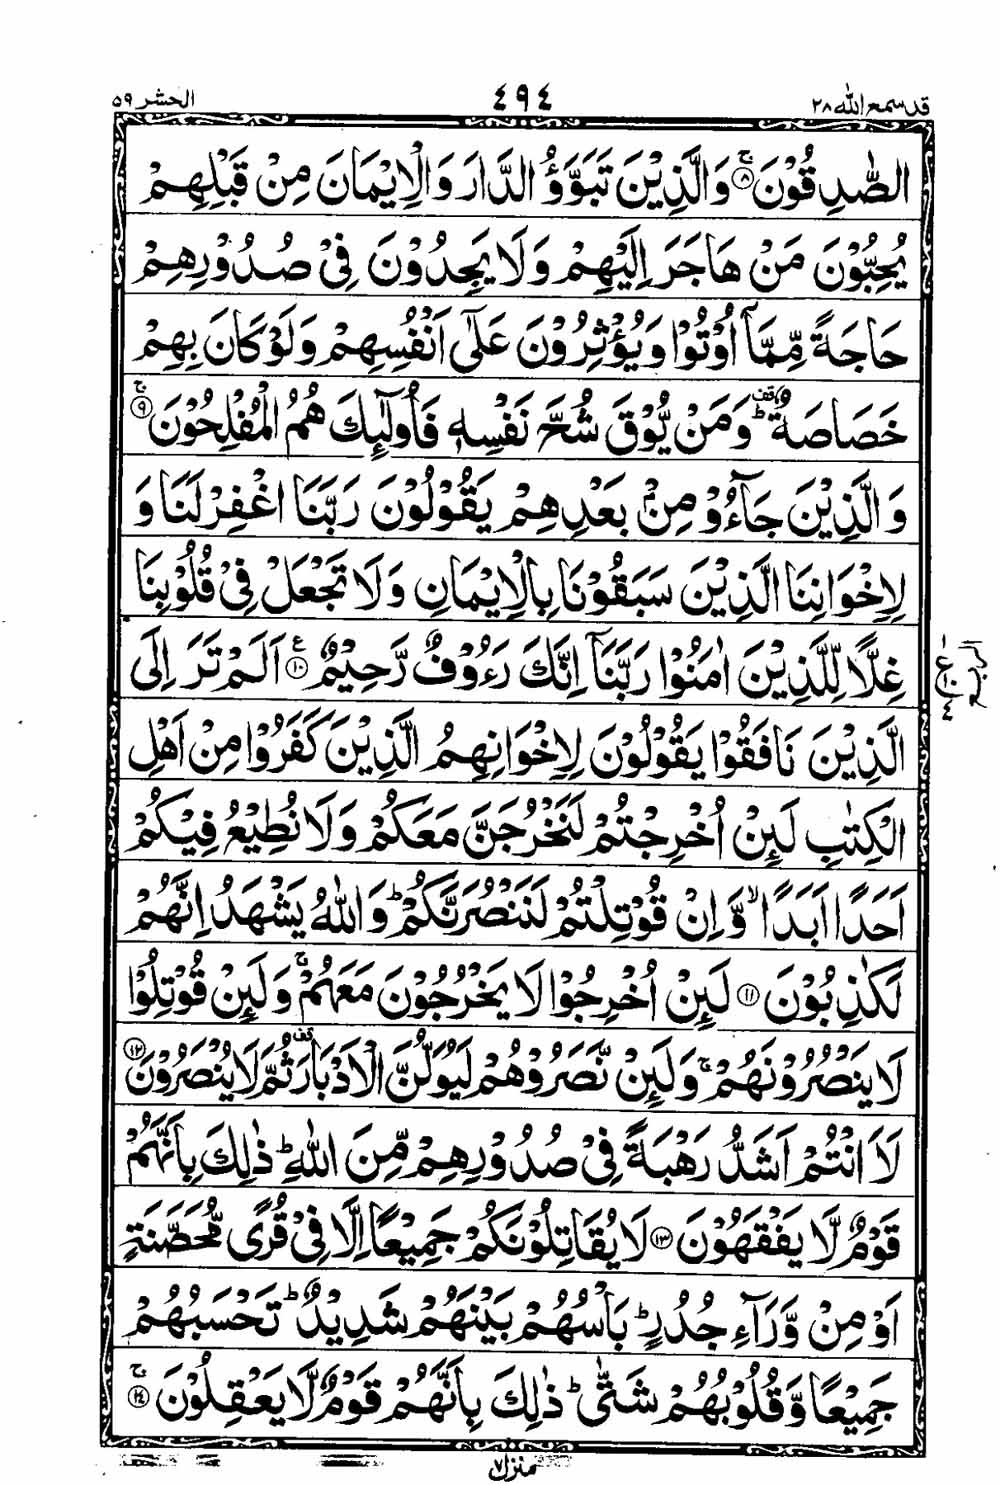 قد سمع الله ٢٨
٤٩٤
الحشر ٥٩
الصّٰدِقُوْنَ ۚ‏﴿۸﴾ وَالَّذِيْنَ تَبَوَّؤُ الدَّارَ وَالْاِيْمَانَ مِنْ قَبْلِهِمْ
يُحِبُّوْنَ مَنْ هَاجَرَ اِلَيْهِمْ وَلَا يَجِدُوْنَ فِىْ صُدُوْرِهِمْ
حَاجَةً مِّمَّاۤ اُوْتُوْا وَيُؤْثِرُوْنَ عَلٰٓى اَنْفُسِهِمْ وَلَوْ كَانَ بِهِمْ
خَصَاصَةٌ ؕ قف وَمَنْ يُّوْقَ شُحَّ نَفْسِهٖ فَاُولٰٓئِكَ هُمُ الْمُفْلِحُوْنَ ۚ‏﴿۹﴾
وَالَّذِيْنَ جَآءُوْ مِنْۢ بَعْدِهِمْ يَقُوْلُوْنَ رَبَّنَا اغْفِرْ لَنَا وَ
لِاِخْوَانِنَا الَّذِيْنَ سَبَقُوْنَا بِالْاِيْمَانِ وَلَا تَجْعَلْ فِىْ قُلُوْبِنَا
غِلًّا لِّلَّذِيْنَ اٰمَنُوْا رَبَّنَاۤ اِنَّكَ رَءُوْفٌ رَّحِيْمٌ ع ﴿۱۰﴾ اَلَمْ تَرَ اِلَى
الَّذِيْنَ نَافَقُوْا يَقُوْلُوْنَ لِاِخْوَانِهِمُ الَّذِيْنَ كَفَرُوْا مِنْ اَهْلِ
الْكِتٰبِ لَئِنْ اُخْرِجْتُمْ لَنَخْرُجَنَّ مَعَكُمْ وَلَا نُطِيْعُ فِيْكُمْ
اَحَدًا اَبَدًا ۙ وَّاِنْ قُوْتِلْتُمْ لَنَنْصُرَنَّكُمْ ؕ وَاللّٰهُ يَشْهَدُ اِنَّهُمْ
لَكٰذِبُوْنَ ﴿۱۱﴾ لَئِنْ اُخْرِجُوْا لَا يَخْرُجُوْنَ مَعَهُمْ ۚ وَلَئِنْ قُوْتِلُوْا
لَا يَنْصُرُوْنَهُمْ ۚ وَلَئِنْ نَّصَرُوْهُمْ لَيُوَلُّنَّ الْاَدْبَارَ قف ثُمَّ لَا يُنْصَرُوْنَ ﴿۱۲﴾
لَاَ انْتُمْ اَشَدُّ رَهْبَةً فِىْ صُدُوْرِهِمْ مِّنَ اللّٰهِ ؕ ذٰلِكَ بِاَنَّهُمْ
قَوْمٌ لَّا يَفْقَهُوْنَ ﴿۱۳﴾ لَا يُقَاتِلُوْنَكُمْ جَمِيْعًا اِلَّا فِىْ قُرًى مُّحَصَّنَةٍ
اَوْ مِنْ وَّرَآءِ جُدُرٍ ؕ بَاْسُهُمْ بَيْنَهُمْ شَدِيْدٌ ؕ تَحْسَبُهُمْ
جَمِيْعًا وَّقُلُوْبُهُمْ شَتّٰى ؕ ذٰلِكَ بِاَنَّهُمْ قَوْمٌ لَّا يَعْقِلُوْنَ ۚ‏﴿۱٤﴾
منزل ٧